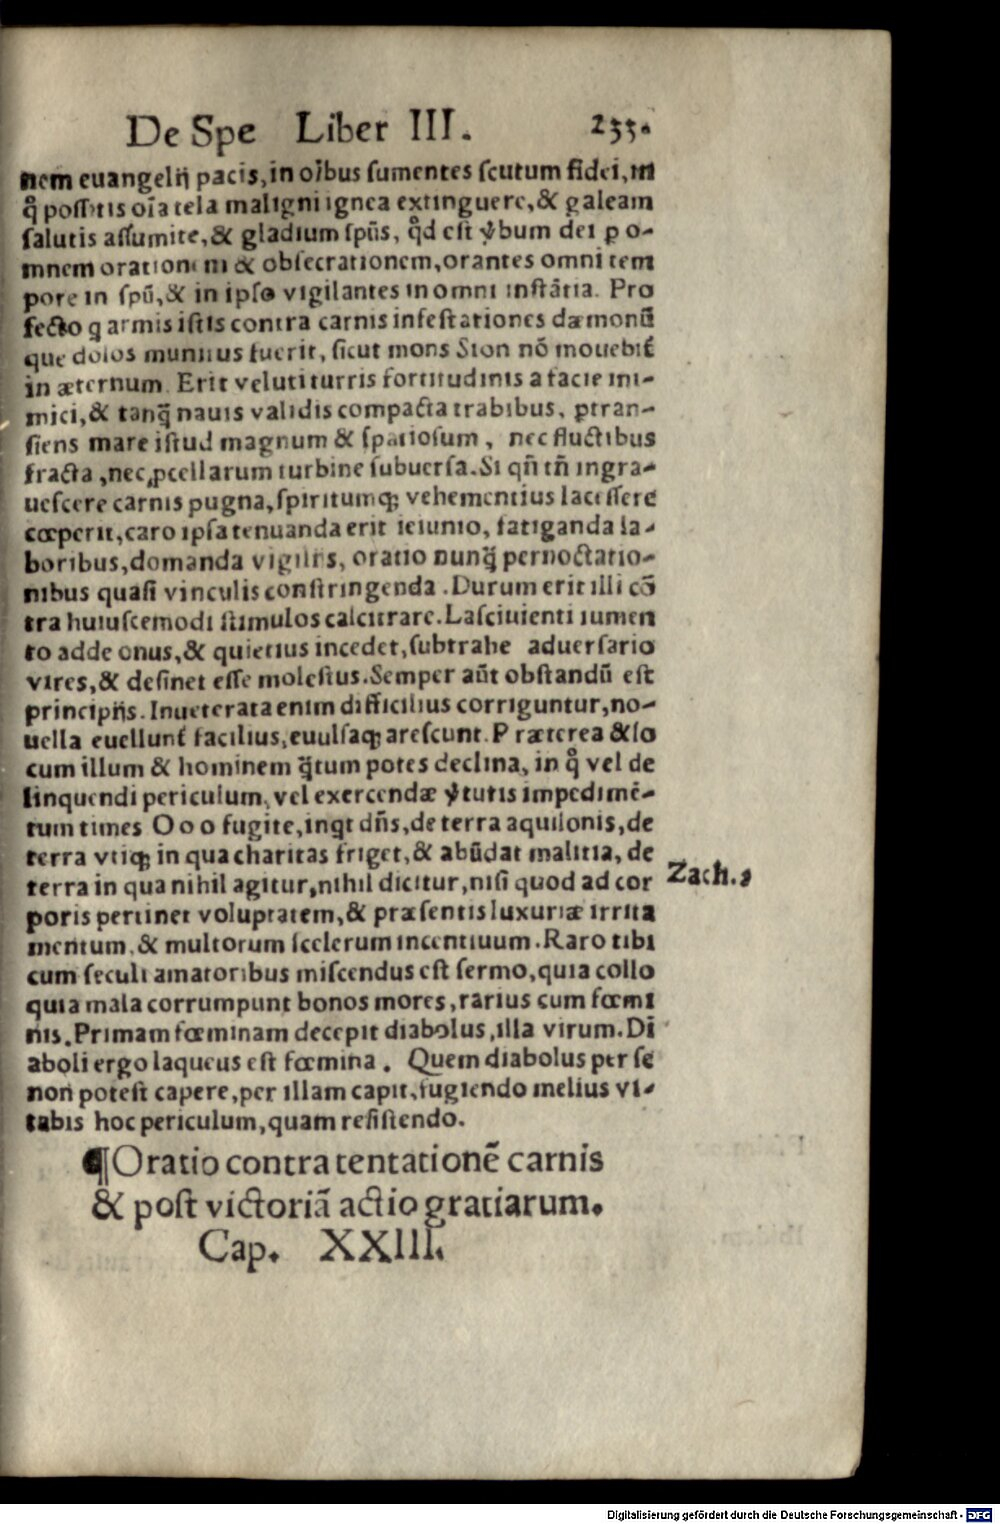 De Spe Liber III. 233.
nem euangelij pacis, in oībus sumentes scutum fidei, in
q̊ possitis oīa tela maligni ignea extinguere, & galeam
salutis assumite, & gladium spūs, qd̊ est v̊bum dei p o-
mnem orationem & obsecrationem, orantes omni tem
pore in spū, & in ipso vigilantes in omni instātia. Pro
fecto q armis istis contra carnis infestationes dæmonū
que dolos munitus fuerit, sicut mons Sion nō mouebit᷑
in æternum. Erit veluti turris fortitudinis a facie ini-
mici, & tanq̄ nauis validis compacta trabibus, ptran-
siens mare istud magnum & spatiosum, nec fluctibus
fracta, nec ꝓcellarum turbine subuersa. Si qn̄ tn̄ ingra-
uescere carnis pugna, spiritumq; vehementius lacessere
cœperit, caro ipsa tenuanda erit ieiunio, fatiganda la-
boribus, domanda vigilijs, oratio nunq̄ pernoctatio-
nibus quasi vinculis constringenda. Durum erit illi cō
tra huiuscemodi stimulos calcitrare. Lasciuienti iumen
to adde onus, & quietius incedet, subtrahe aduersario
vires, & desinet esse molestus. Semper aūt obstandū est
principijs. Inueterata enim difficilius corriguntur, no-
uella euellunt᷑ facilius, euulsaq; arescunt. Præterea & lo
cum illum & hominem q̄tum potes declina, in q̊ vel de
linquendi periculum, vel exercendæ v̊tutis impedimē-
tum times O o o fugite, inqt dn̄s, de terra aquilonis, de
terra vtiq; in qua charitas friget, & abūdat malitia, de
terra in qua nihil agitur, nihil dicitur, nisi quod ad cor
Zach. 2
poris pertinet voluptatem, & præsentis luxuriæ irrita
mentum, & multorum scelerum incentiuum. Raro tibi
cum seculi amatoribus miscendus est sermo, quia collo
quia mala corrumpunt bonos mores, rarius cum fœmi
nis. Primam fœminam decepit diabolus, illa virum. Di
aboli ergo laqueus est fœmina. Quem diabolus per se
non potest capere, per illam capit, fugiendo melius vi-
tabis hoc periculum, quam resistendo.
¶Oratio contra tentationē carnis
& post victoriā actio gratiarum.
Cap. XXIII.
Digitalisierung gefördert durch die Deutsche Forschungsgemeinschaft - DFG